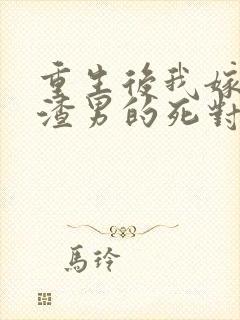 重生後我嫁
渣男的死對
馬玲